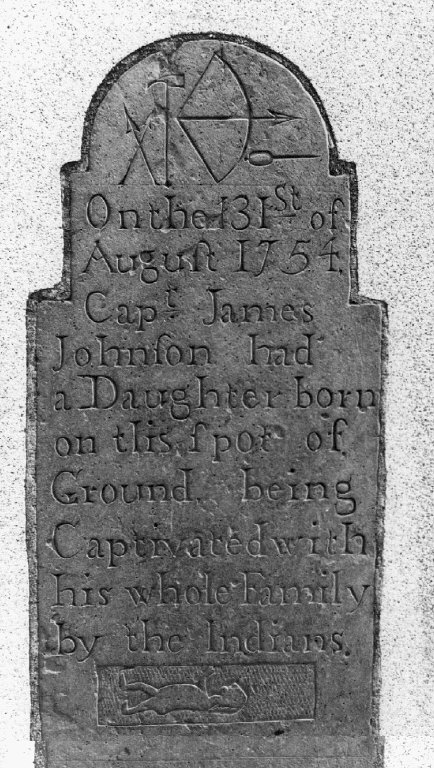 On the 31St of
Auguſt 1754.
Capt James
Johnſon had
a Daughter born
on tHis ſpot of
Ground. being
Captivated with
his whole Family
by the Indians.